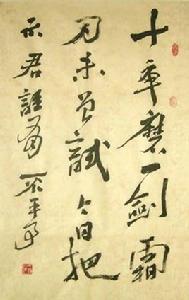 十年磨一剑霜
刃未曾試今日把
示君誰为不平事